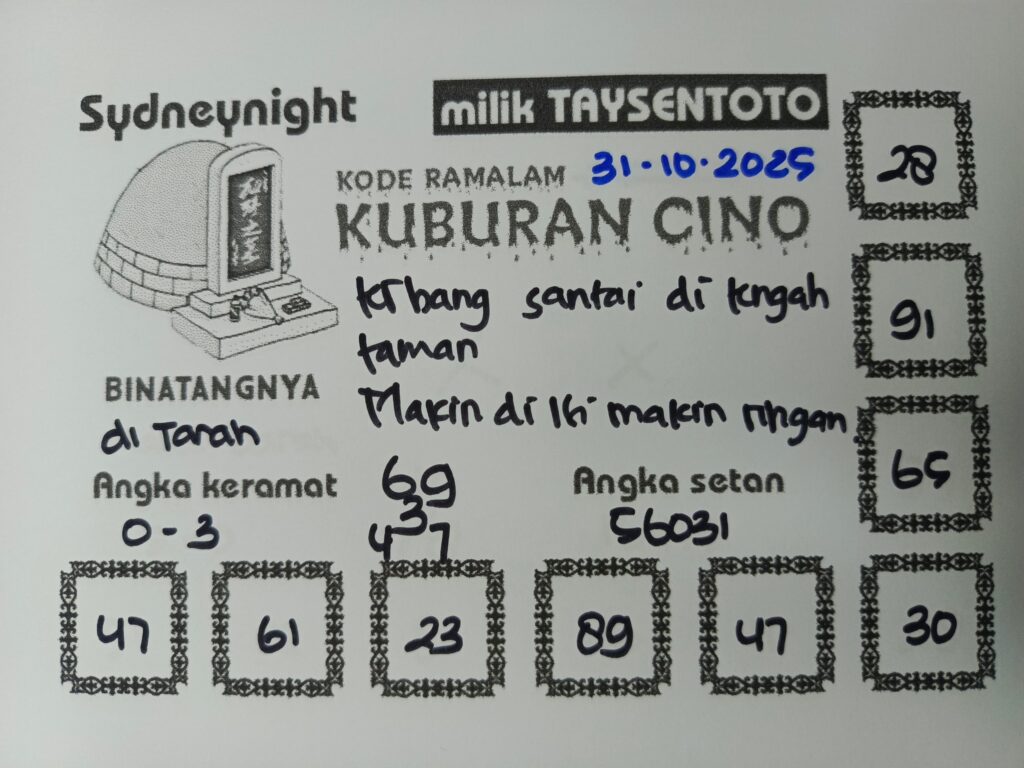 Sydneynight
milik TAYSENTOTO
KODE RAMALAM 31-10-2025
KUBURAN CINO
santai di tengah
taman
Makin di isi makin ringan.
BINATANGNYA
di Tanah
Angka keramat
0 - 3
69
3
47
Angka setan
56031
28
91
65
47
61
23
89
47
30